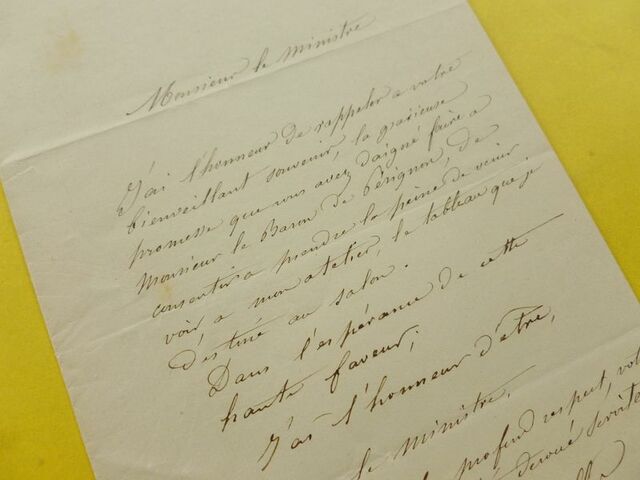 Monsieur le ministre
J'ai l'honneur de rappeler a votre
bienveillant souvenir, la gracieuse
promesse que vous avez daigné faire a
Monsieur le Baron de Pérignon, de
consentir a prendre la peine de venir
voir, a mon atelier, le tableau que je
destine au salon.
Dans l'espérance de cette
haute faveur,
J'ai l'honneur d'être,
le ministre,
profond respect, vot
dévoué servite